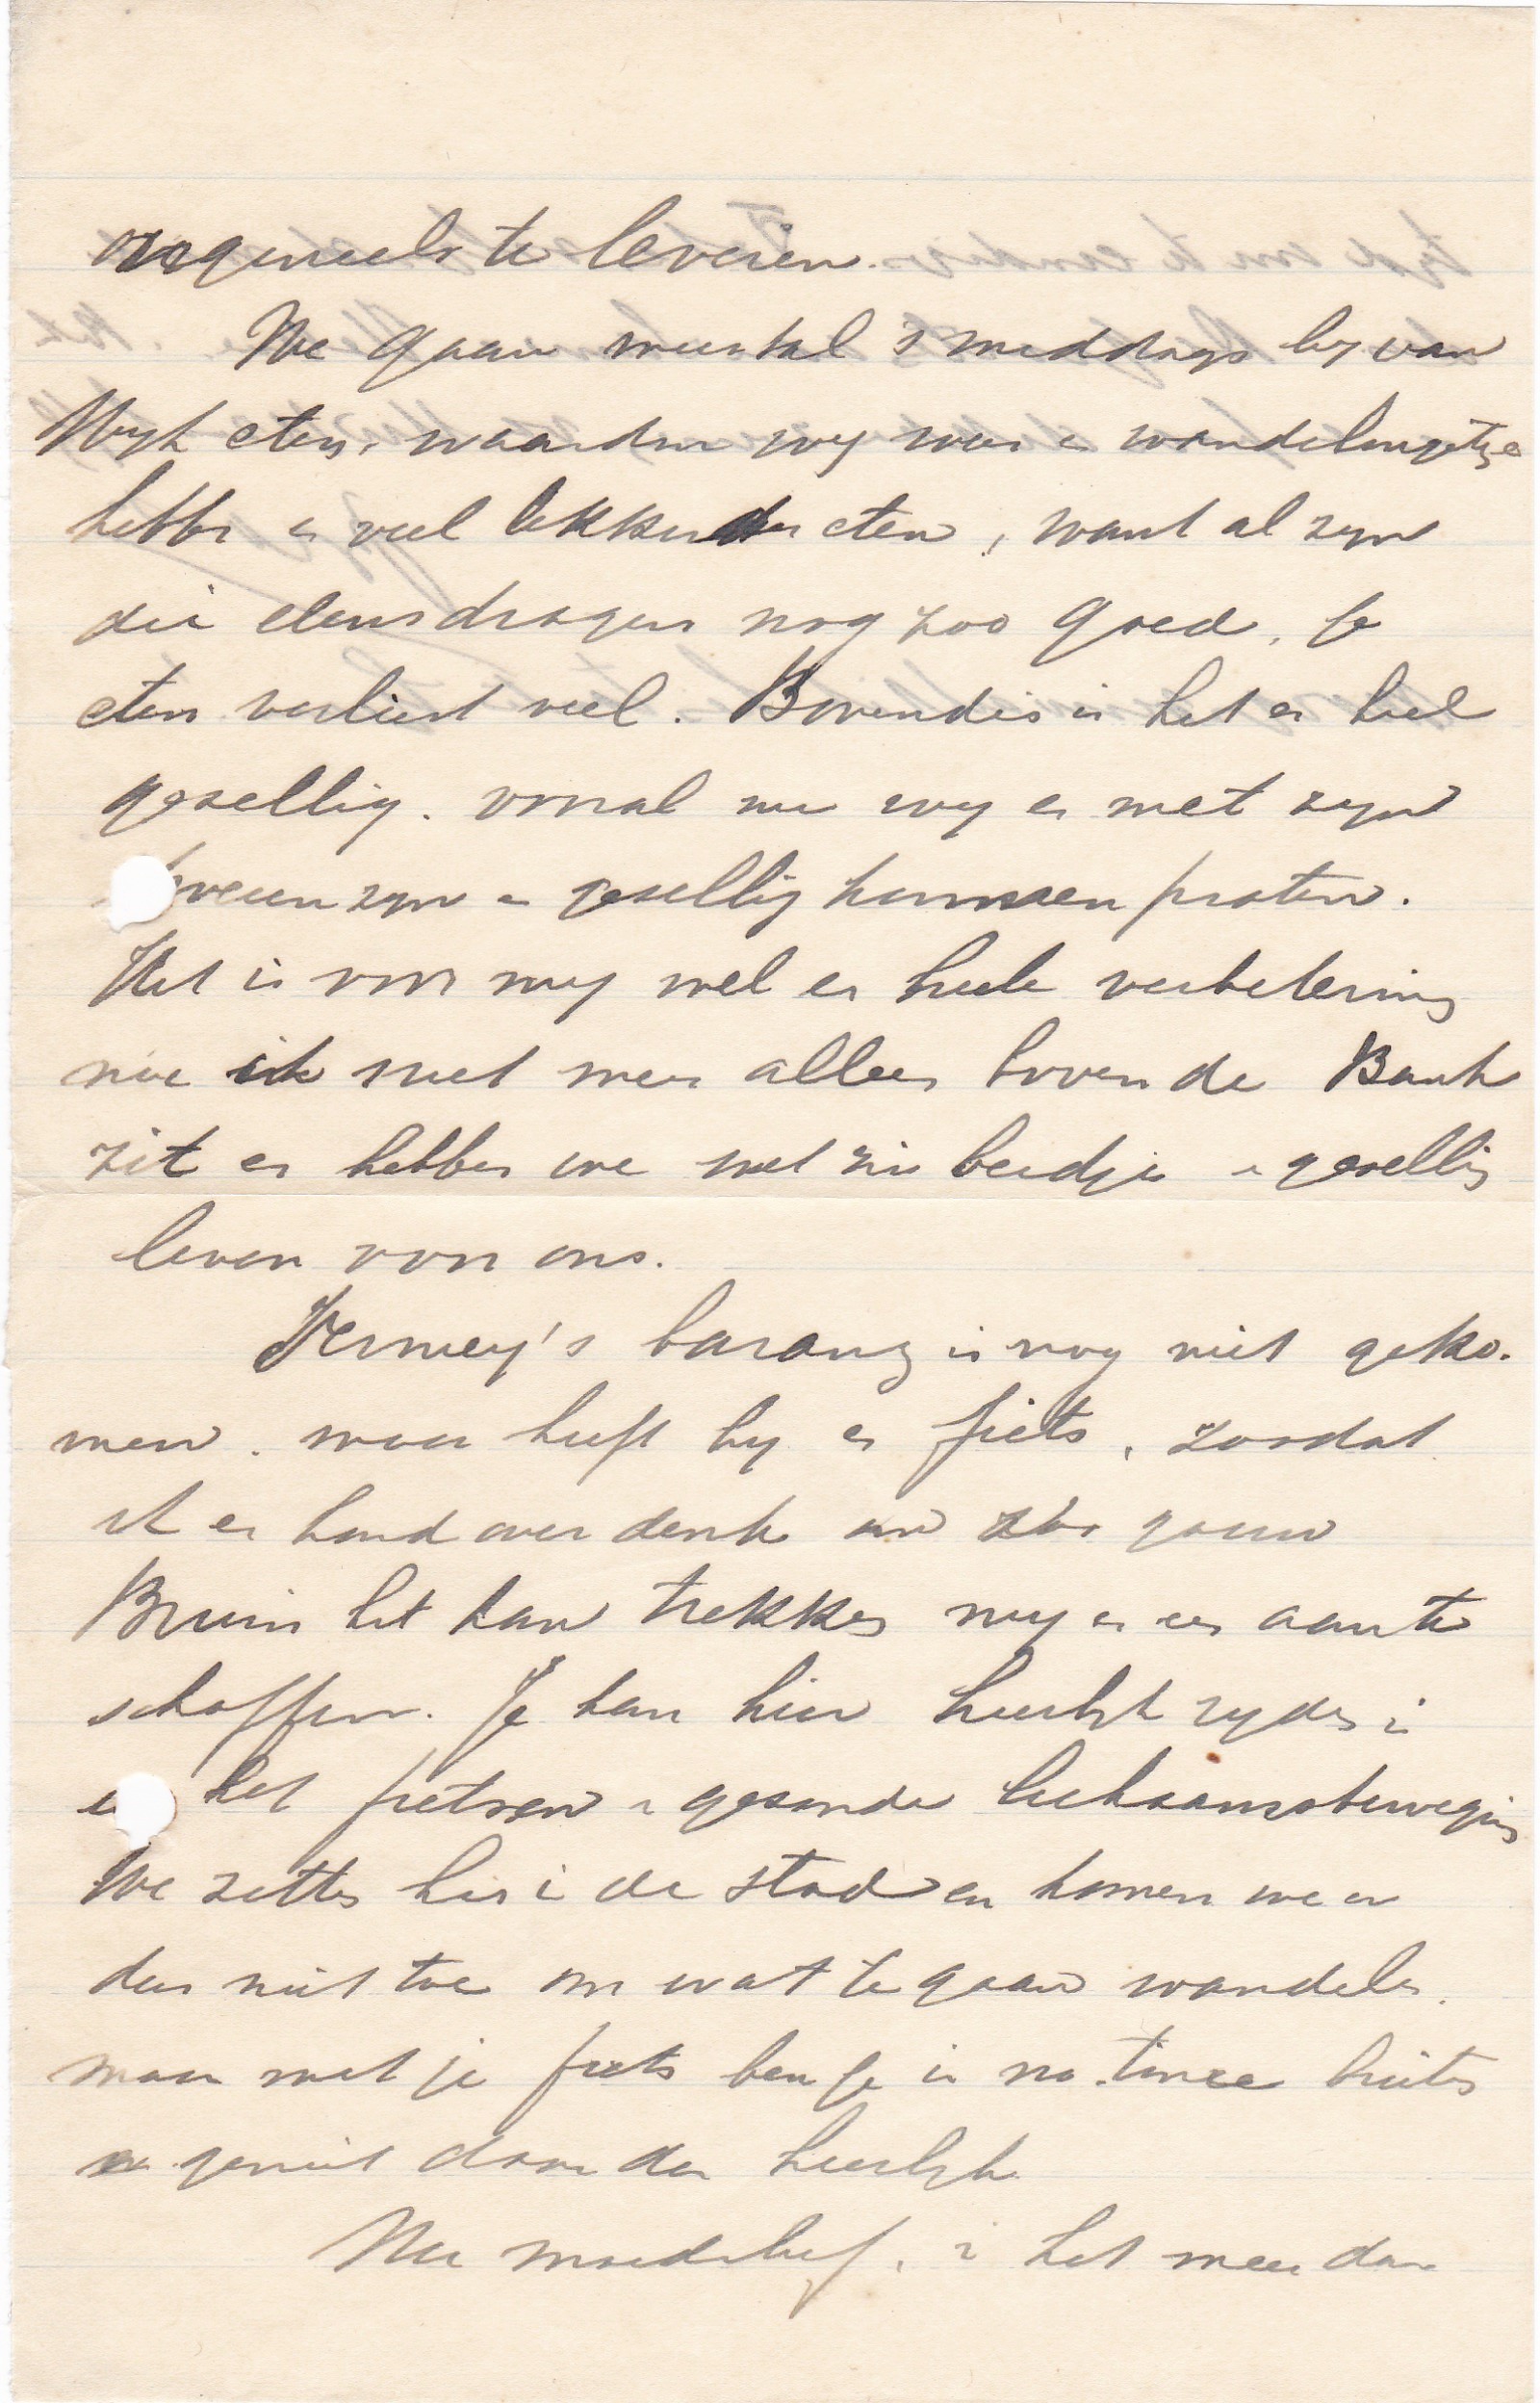 ongeneels te leveren.
We gaan meestal 's middags by van
Wyk eten, waardoor wy weer en wandelingetje
hebben en veel lekkerder eten, want al zyn
die etensdragers nog zoo goed, je
eten verliest veel. Bovendien is het er heel
gezellig. vooral nu wy er met zyn
tweeen zyn en gezellig kunnen praten.
Het is voor my wel en heele verbetering
nu ik niet meer alleen boven de Bank
zit en hebben we met zn beidjes en gezellig
leven voor ons.
Vermey's barang is nog niet geko-
men. maar heeft hy en fiets, zoodat
ik er hard over denk om zoo gauw
Bruin het kan trekken my er een aan te
schaffen. Je kan hier heerlyk ryden en
is het fietsen en gezonde lichaamsbeweging
We zitten hier in de stad en komen we er
dus niet toe om wat te gaan wandelen.
maar met je fiets ben je in no time buiten
en geniet daar dan heerlyk
Nu moederlief, is het meer dan